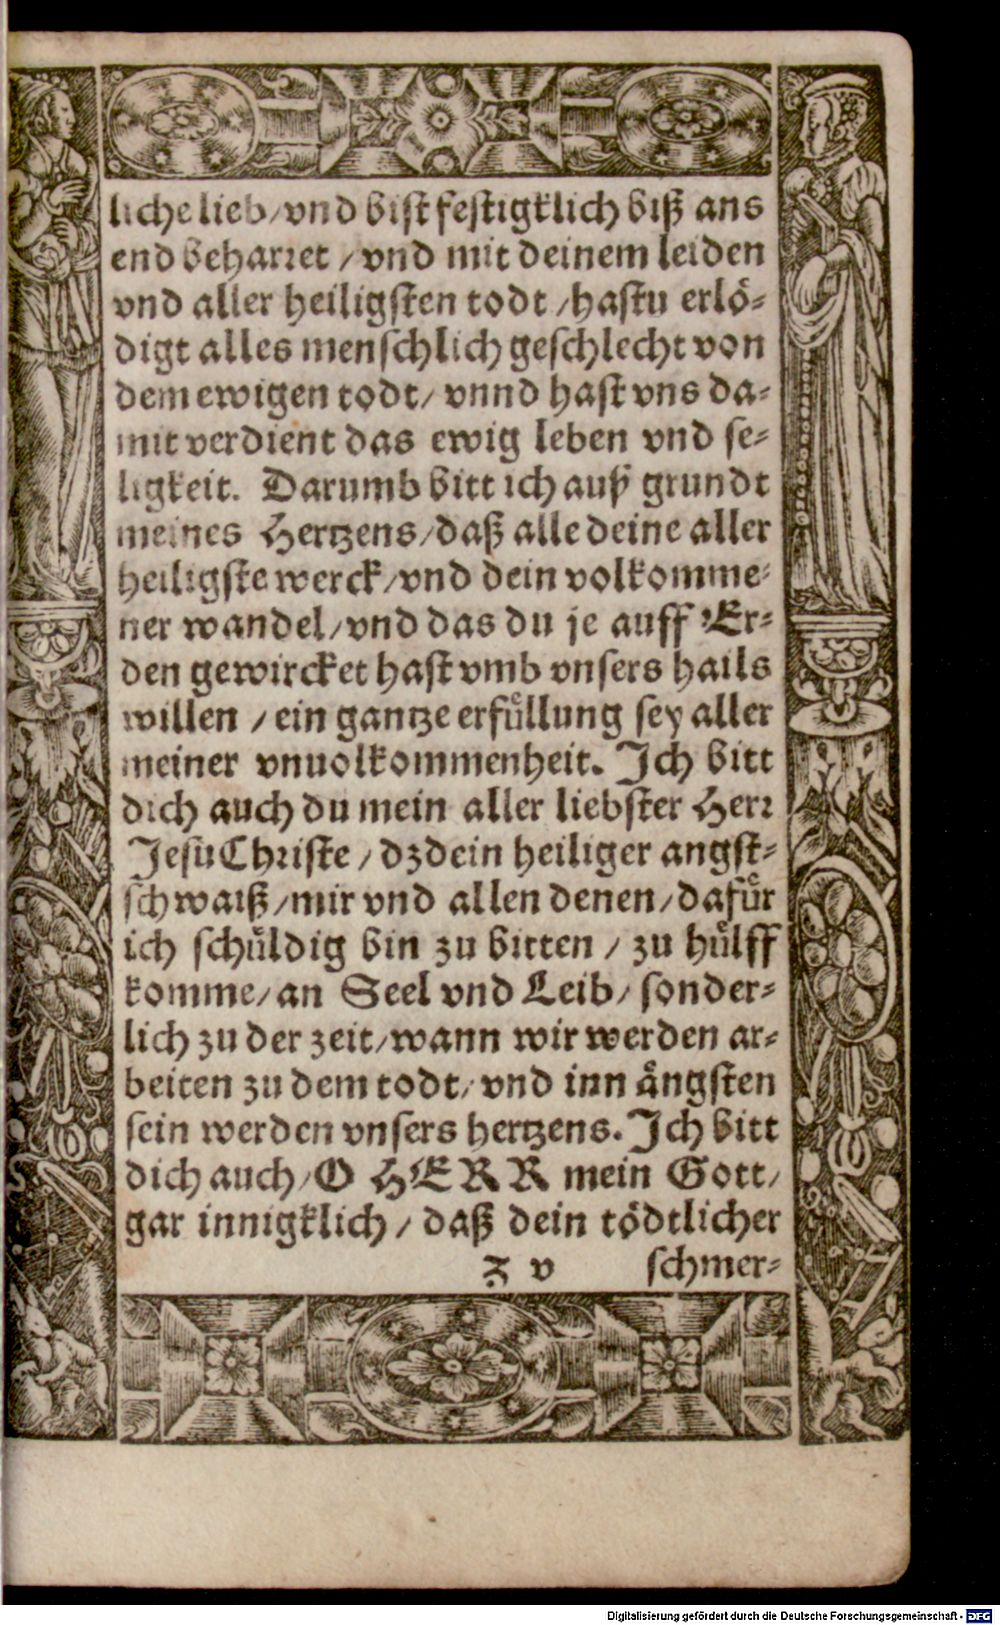 liche lieb / vnd bist festigklich biß ans
end beharret / vnd mit deinem leiden
vnd aller heiligsten todt / hastu erlö-
digt alles menschlich geschlecht von
dem ewigen todt / vnnd hast vns da-
mit verdient das ewig leben vnd se-
ligkeit. Darumb bitt ich auß grundt
meines Hertzens / daß alle deine aller
heiligste werck / vnd dein volkomme-
ner wandel / vnd das du je auff Er-
den gewircket hast vmb vnsers hails
willen / ein gantze erfüllung sey aller
meiner vnuolkommenheit. Ich bitt
dich auch du mein aller liebster Herr
Jesu Christe / dz dein heiliger angst-
schwaiß / mir vnd allen denen / dafür
ich schuldig bin zu bitten / zu hülff
komme / an Seel vnd Leib / sonder-
lich zu der zeit / wann wir werden ar-
beiten zu dem todt / vnd inn ängsten
sein werden vnsers hertzens. Ich bitt
dich auch / O HERR mein Gott /
gar innigklich / daß dein tödtlicher
z v schmer-
Digitalisierung gefördert durch die Deutsche Forschungsgemeinschaft - DFG